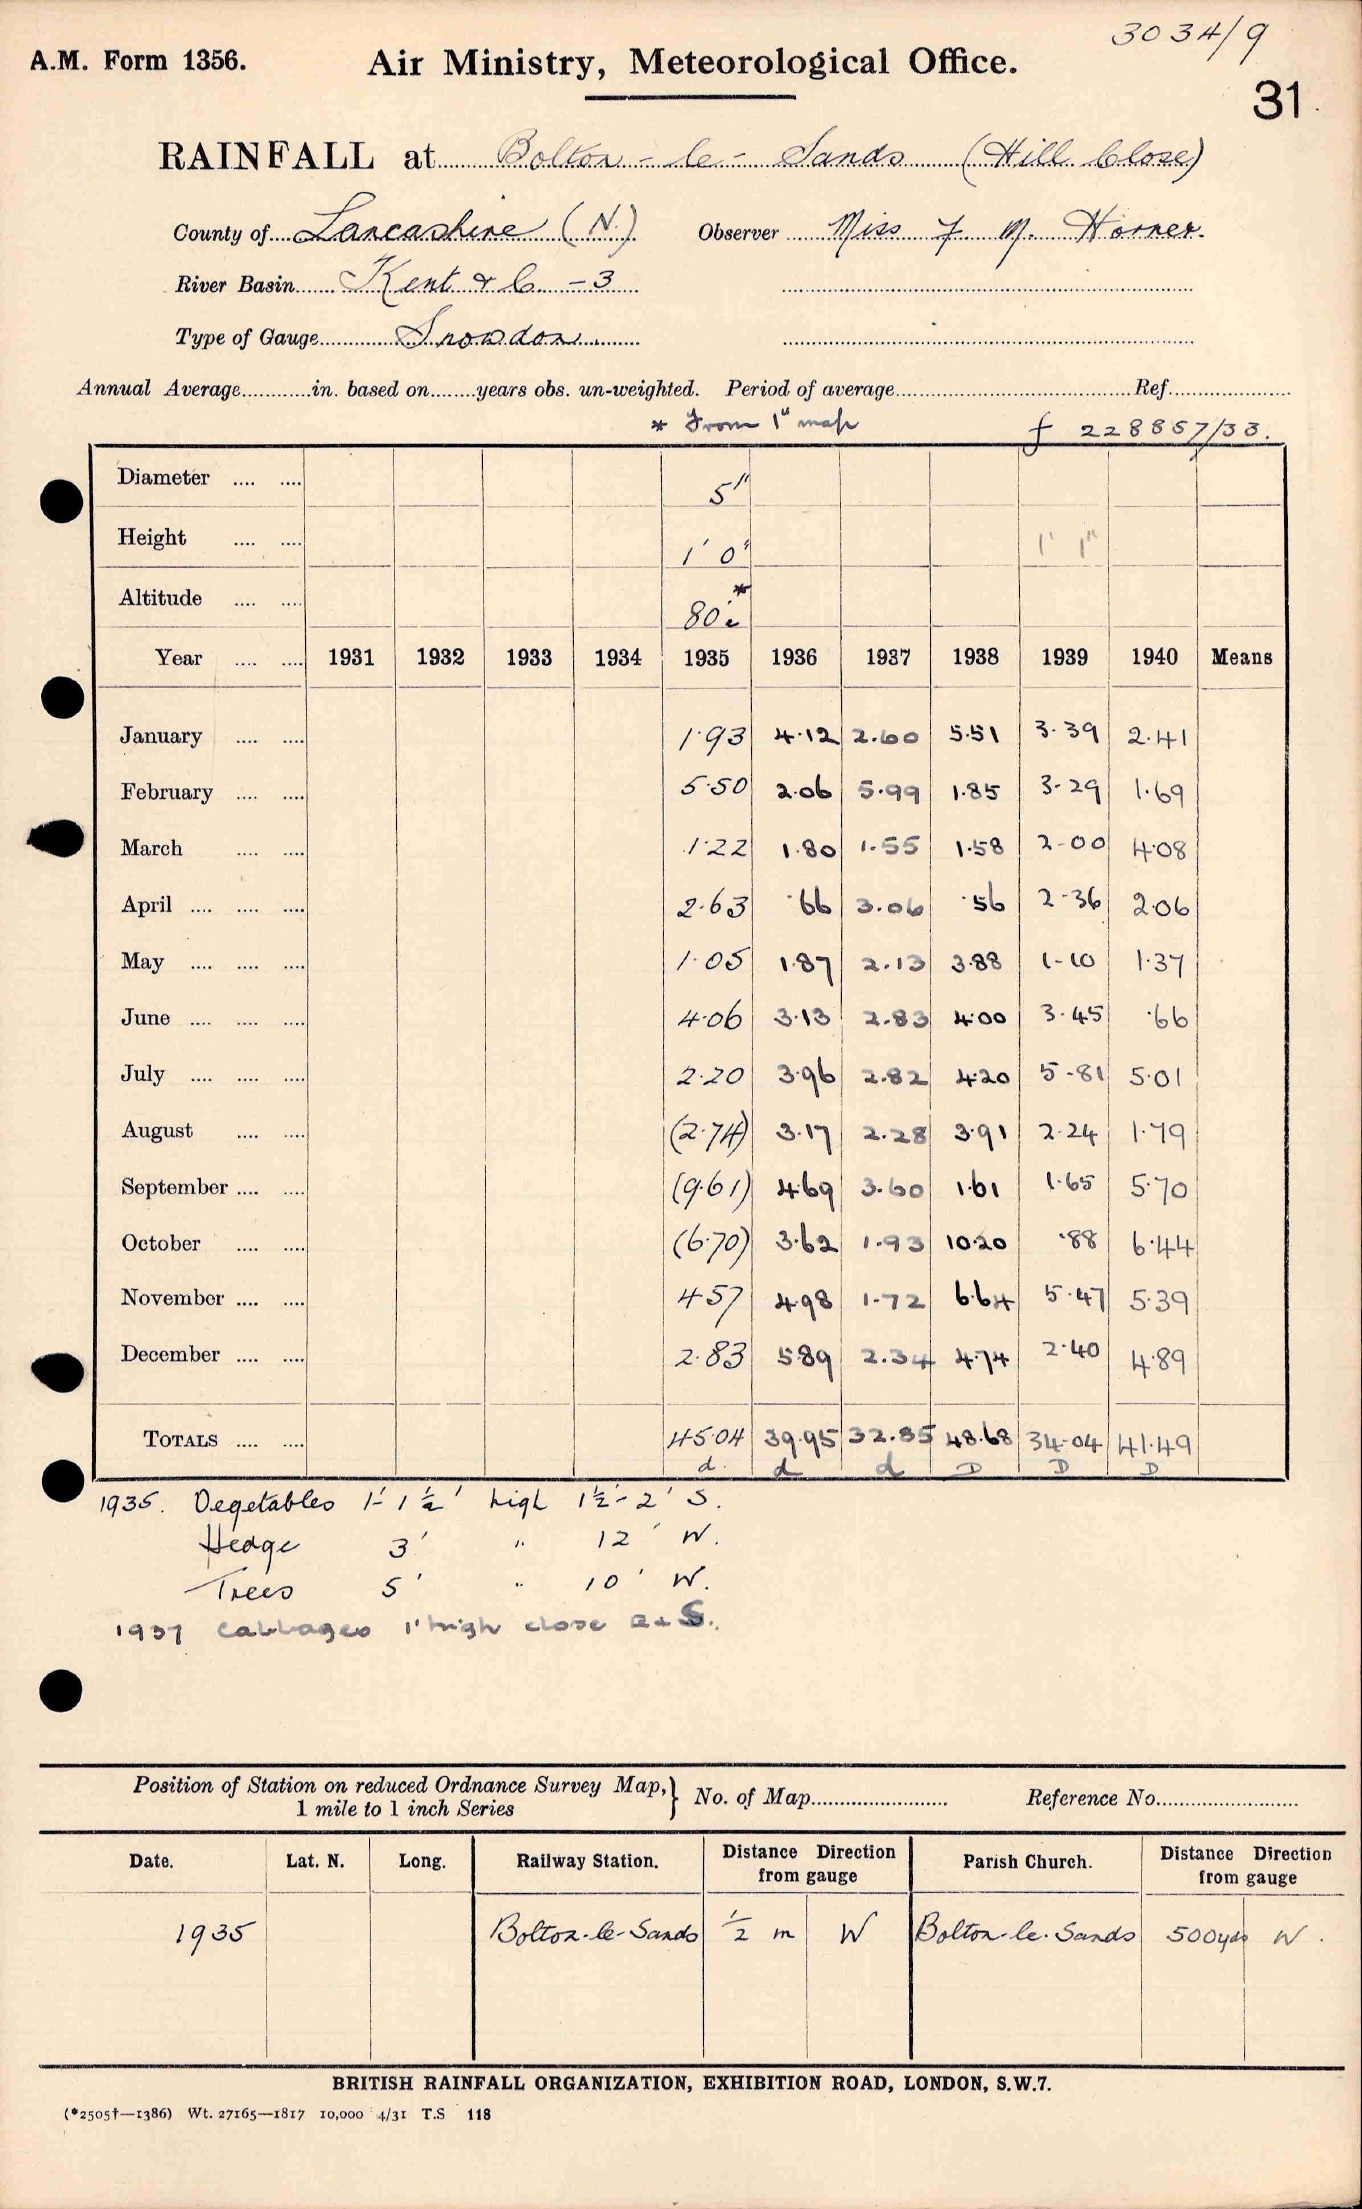 3034/9
A.M. Form 1356. Air Ministry, Meteorological Office.
31
RAINFALL at Bolton-le-Sands (Hill Close)
County of Lancashire (N.) Observer Miss F. M. Horner.
River Basin Kent & C - 3
Type of Gauge Snowdon
Annual Average in. based on years obs. un-weighted. Period of average Ref.
* From 1" map f 228857/33.
Diameter 5"
Height 1' 0" 1' 1"
Altitude 80' c *
Year 1931 1932 1933 1934 1935 1936 1937 1938 1939 1940 Means
January 1.93 4.12 2.60 5.51 3.39 2.41
February 5.50 2.06 5.99 1.85 3.29 1.69
March 1.22 1.80 1.55 1.58 2.00 4.08
April 2.63 .66 3.06 .56 2.36 2.06
May 1.05 1.87 2.13 3.88 1.10 1.37
June 4.06 3.13 2.83 4.00 3.45 .66
July 2.20 3.96 2.82 4.20 5.81 5.01
August (2.74) 3.17 2.28 3.91 2.24 1.79
September (9.61) 4.69 3.60 1.61 1.65 5.70
October (6.70) 3.62 1.93 10.20 .88 6.44
November 4.57 4.98 1.72 6.64 5.47 5.39
December 2.83 5.89 2.34 4.74 2.40 4.89
TOTALS 45.04 39.95 32.85 48.68 34.04 41.49
d. d d D D D
1935. Vegetables 1'-1½' high 1½'-2' S.
Hedge 3' " 12' W.
Trees 5' " 10' W.
1937 Cabbages 1' high close E + S.
Position of Station on reduced Ordnance Survey Map, } No. of Map Reference No.
1 mile to 1 inch Series
Date. Lat. N. Long. Railway Station. Distance Direction from gauge Parish Church. Distance Direction from gauge
1935 Bolton-le-Sands ½ m W Bolton-le-Sands 500 yds W.
BRITISH RAINFALL ORGANIZATION, EXHIBITION ROAD, LONDON, S.W.7.
(*2505†—1386) Wt. 27165—1817 10,000 4/31 T.S 118